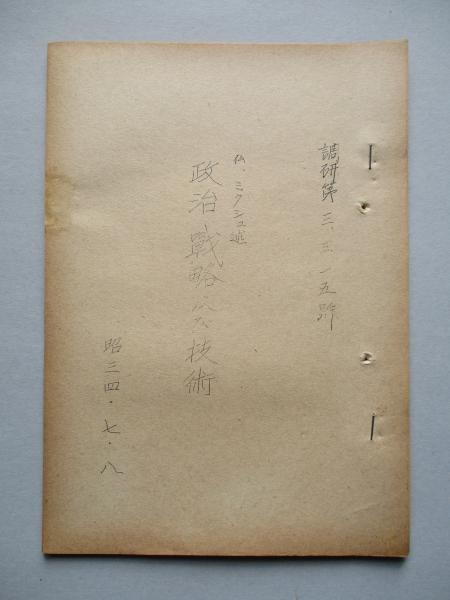 調研第三、三一五号
仏、ミクシュ述
政治戰略公技術
昭三四・七・八